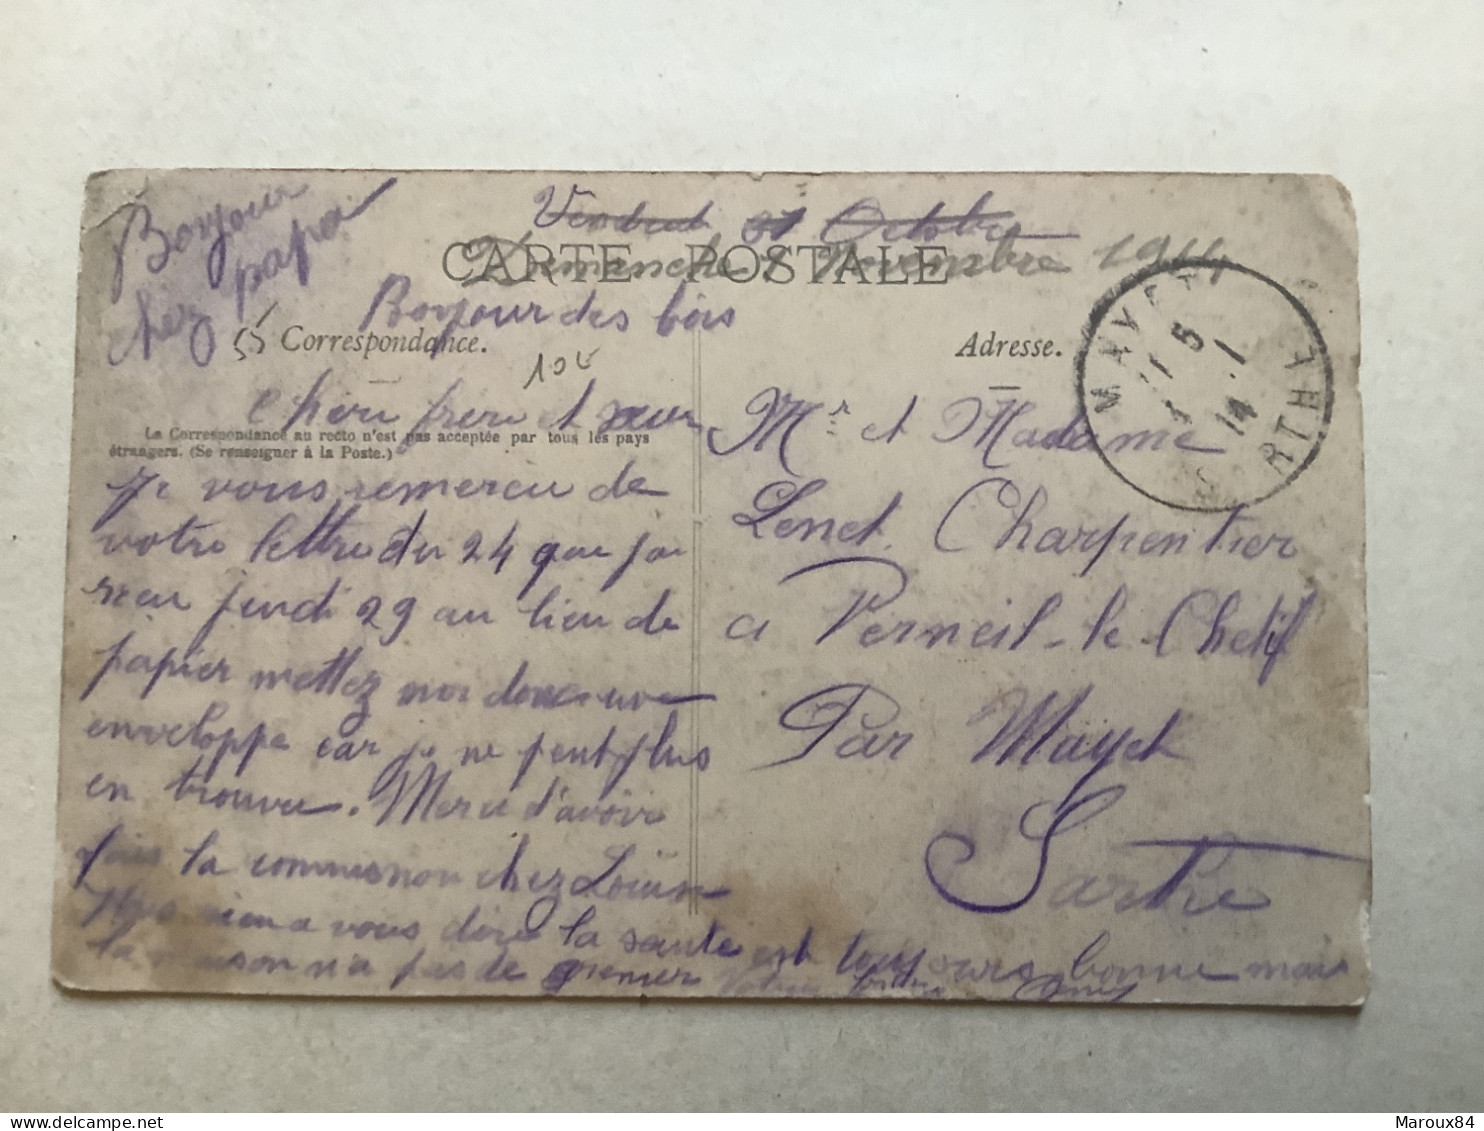 Bonjour
chez papa
Vendredi 31 Octobre
Dimanche 1 Novembre 1914
CARTE POSTALE
Bonjour des bois
55 Correspondance.
10€
Adresse.
MAYET
SARTHE
5
14
Cheru frere et sœur
La Correspondance au recto n'est pas acceptée par tous les pays
étrangers. (Se renseigner à la Poste.)
Je vous remercie de
votre lettre du 24 que jai
reçu jeudi 29 au lieu de
papier mettez moi donc une
enveloppe car je ne peut plus
en trouver. Merci d'avoir
fais la commission chez
rien a vous dire la santé est toujours bonne mais
la maison n'a pas de grenier Votre frère
Mr et Madame
Lenet Charpentier
a Verneil-le-Chetif
Par Mayet
Sarthe
Maroux84